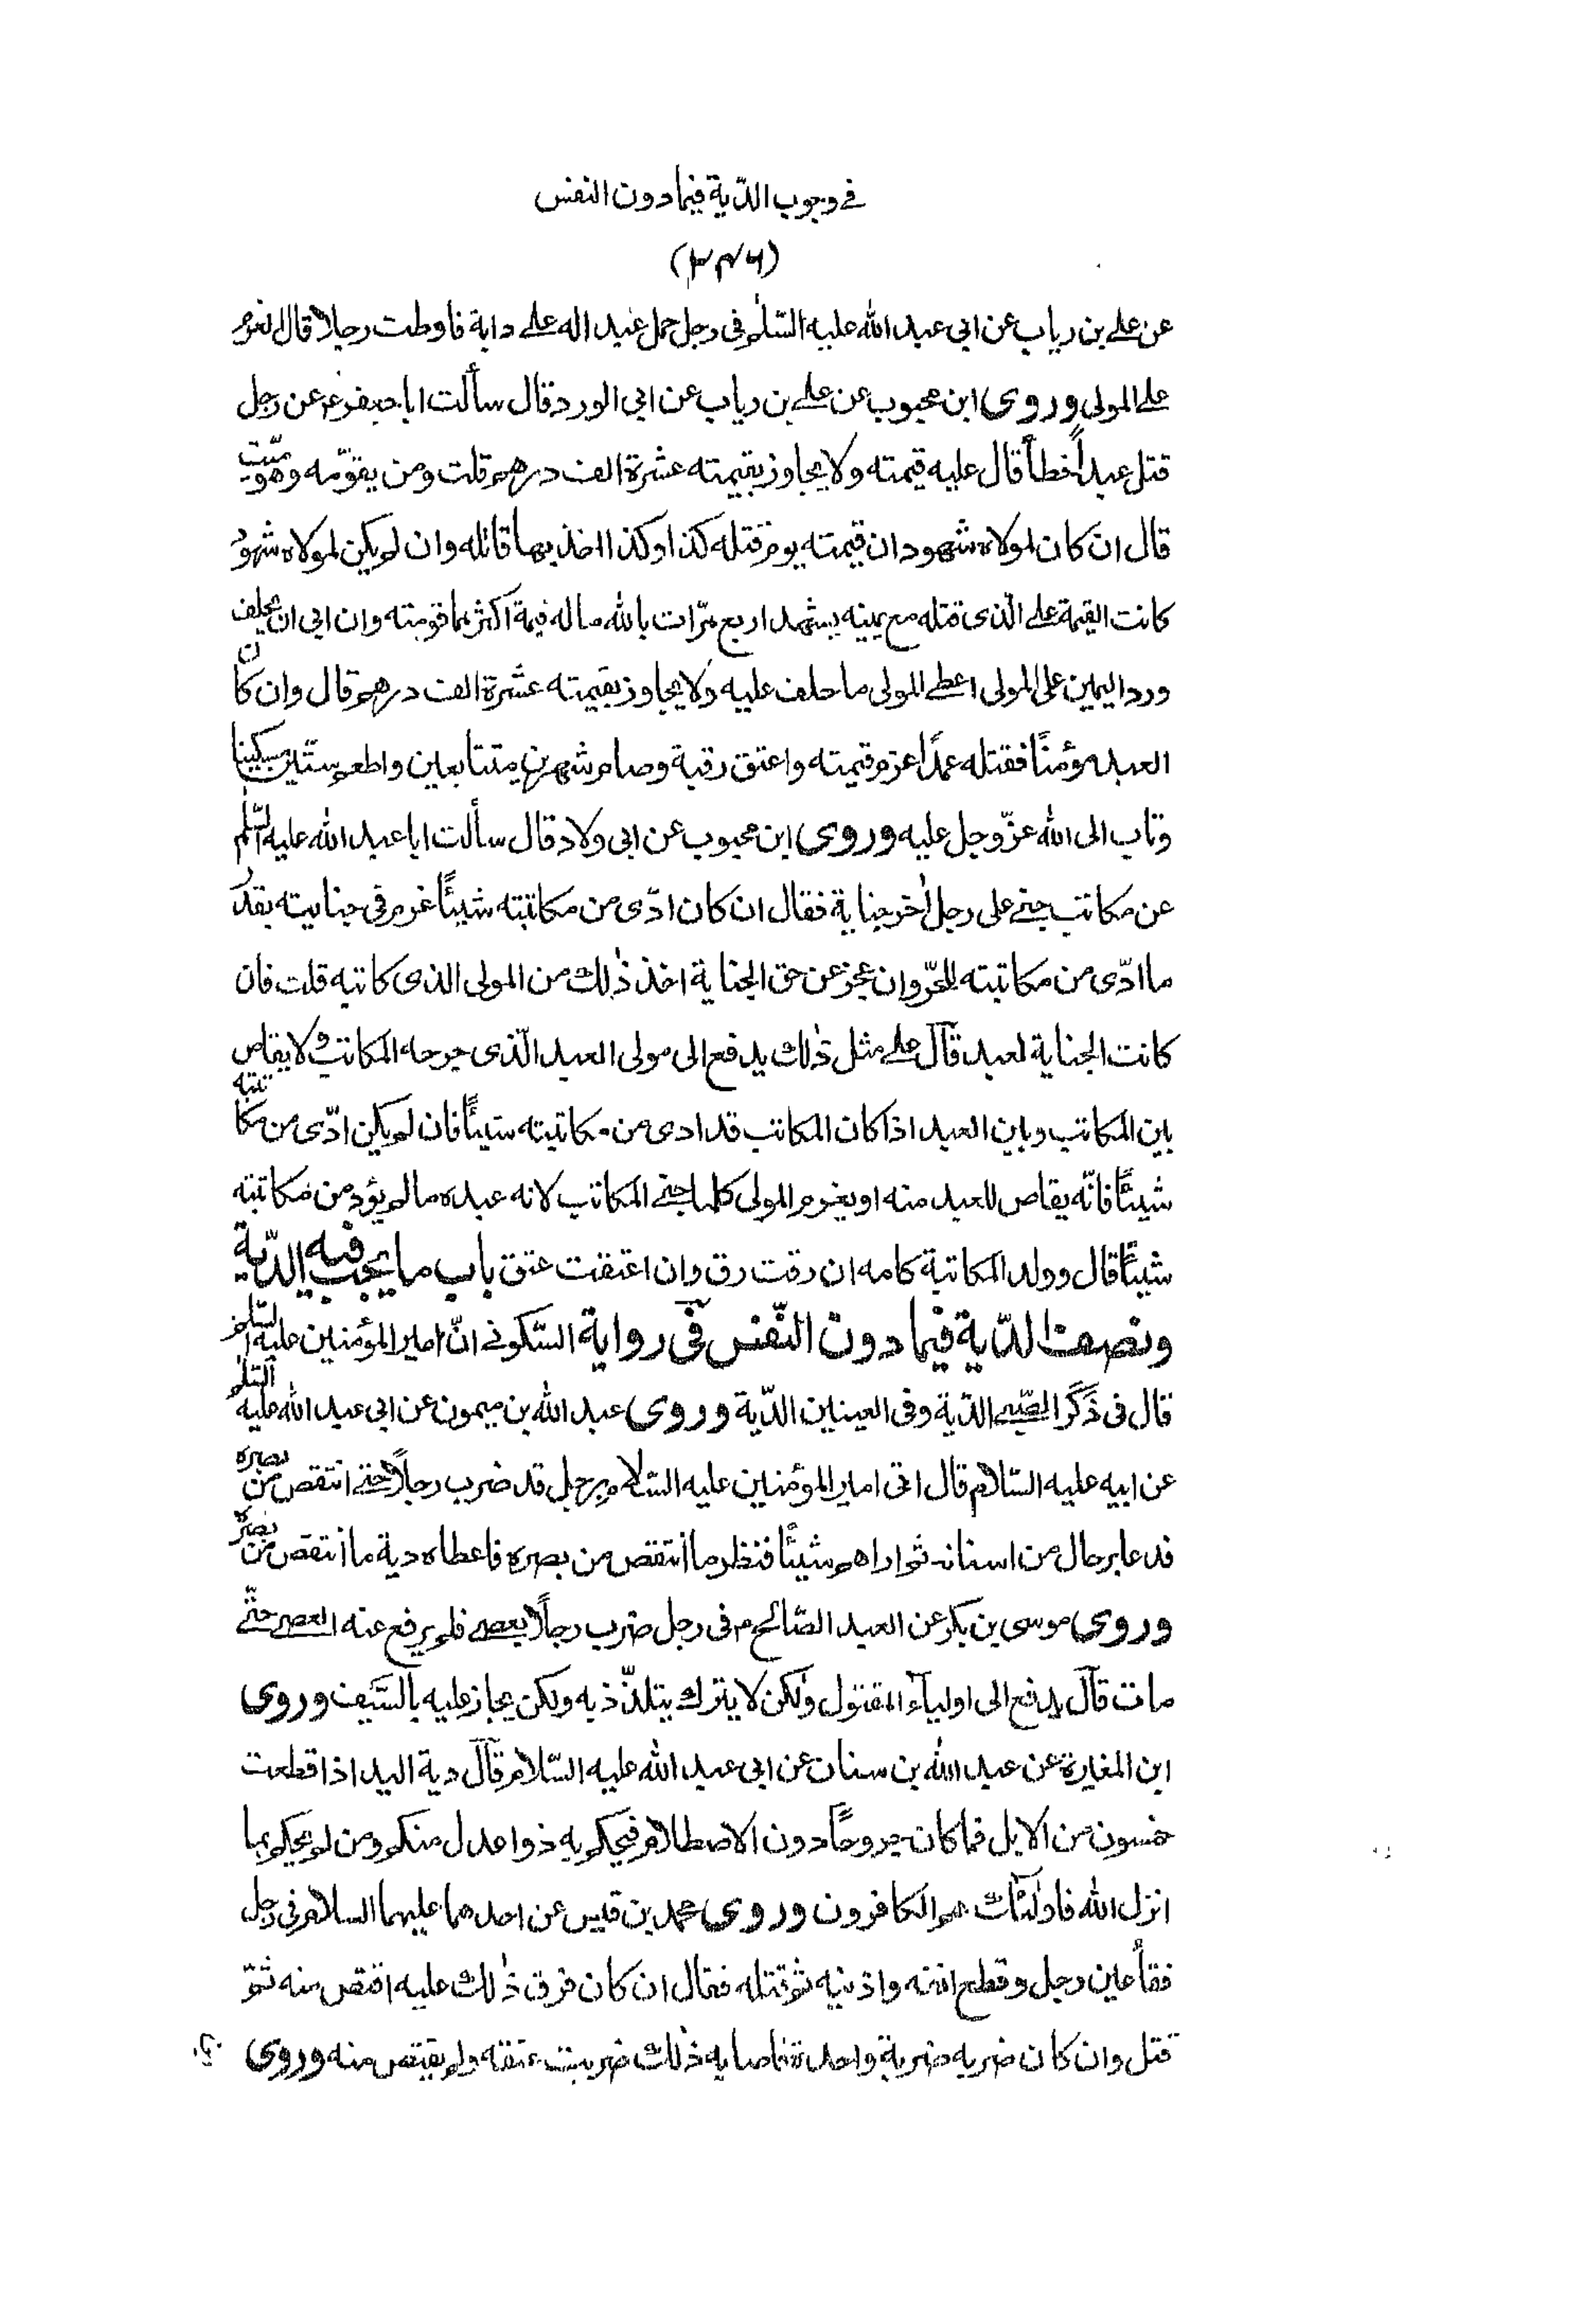 في وجوب الدّية فيما دون النفس
(٣٤٦)
عن علي بن رياب عن ابي عبد الله عليه السّلم في رجل حمل عبد اله على دابة فاوطت رجلا قال الغرم
على المولى وروى ابن محبوب عن علي بن رياب عن ابي الورد قال سألت ابا جعفر ع عن رجل
قتل عبداً خطأً قال عليه قيمته ولا يجاوز بقيمته عشرة الف درهم قلت ومن يقوّمه وهو ميّت
قال ان كان لمولاه شهود ان قيمته يوم قتله كذا وكذا اخذ بها قاتله وان لم يكن لمولاه شهود
كانت القيمة على الّذى قتله مع يمينه يشهد اربع مرّات بالله ما له قيمة اكثر مما قومته وان ابى ان يحلف
ورد اليمين على المولى اعطى المولى ما حلف عليه ولا يجاوز بقيمته عشرة الف درهم قال وان كان
العبد مؤمنًا فقتله عمدًا اغرم قيمته واعتق رقبة وصام شهرين متتابعين واطعم ستّين مسكينا
وتاب الى الله عزّ وجل عليه وروى ابن محبوب عن ابى ولاد قال سألت ابا عبد الله عليه السّلم
عن مكاتب جنى على رجل اخر جناية فقال ان كان ادّى من مكاتبته شيئًا غرم في جنايته بقدر
ما ادّى من مكاتبته للحرّ وان عجز عن حق الجناية اخذ ذلك من المولى الذى كاتبه قلت فان
كانت الجناية لعبد قال على مثل ذلك يدفع الى مولى العبد الّذى جرحه المكاتب ولا يقاص
بين المكاتب وبين العبد اذا كان المكاتب قد ادى من مكاتبته شيئًا فان لم يكن ادّى من مكاتبته
شيئًا فانّه يقاص للعبد منه او يغرم المولى كلما جنى المكاتب لانه عبده ما لم يؤد من مكاتبته
شيئًا قال وولد المكاتبة كامه ان رقت رق وان اعتقت عتق باب ما يجب فيه الدّية
ونصف الدّية فيما دون النّفس في رواية السّكوني انّ امير المؤمنين عليه السّلم
قال في ذَكَر الصّبي الدّية وفى العينين الدّية وروى عبد الله بن ميمون عن ابي عبد الله عليه السّلم
عن ابيه عليه السّلام قال اتى امير المؤمنين عليه السّلام برجل قد ضرب رجلًا حتى انتقص من بصره
فدعا برجال من اسنانه ثم اراهم شيئًا فنظر ما انتقص من بصره فاعطاه دية ما انتقص من بصره
وروى موسى بن بكر عن العبد الصّالح ع في رجل ضرب رجلًا بعصى فلم يرفع عنه العصى حتّى
مات قال يدفع الى اولياء المقتول ولكن لا يترك يتلذّذ به ولكن يجاز عليه بالسّيف وروى
ابن المغيرة عن عبد الله بن سنان عن ابى عبد الله عليه السّلام قال دية اليد اذا قطعت
خمسون من الابل فما كان جروحًا دون الاصطلام فيحكم به ذوا عدل منكم ومن لم يحكم بما
انزل الله فاولئك هم الكافرون وروى محمد بن قيس عن احدهما عليهما السلام في رجل
فقأ عين رجل وقطع انفه واذنيه ثم قتله فقال ان كان فرق ذلك عليه اقتص منه ثمّ
قتل وان كان ضربه ضربة واحدة فاصابه ذلك ضربت عنقه ولم يقتص منه وروى